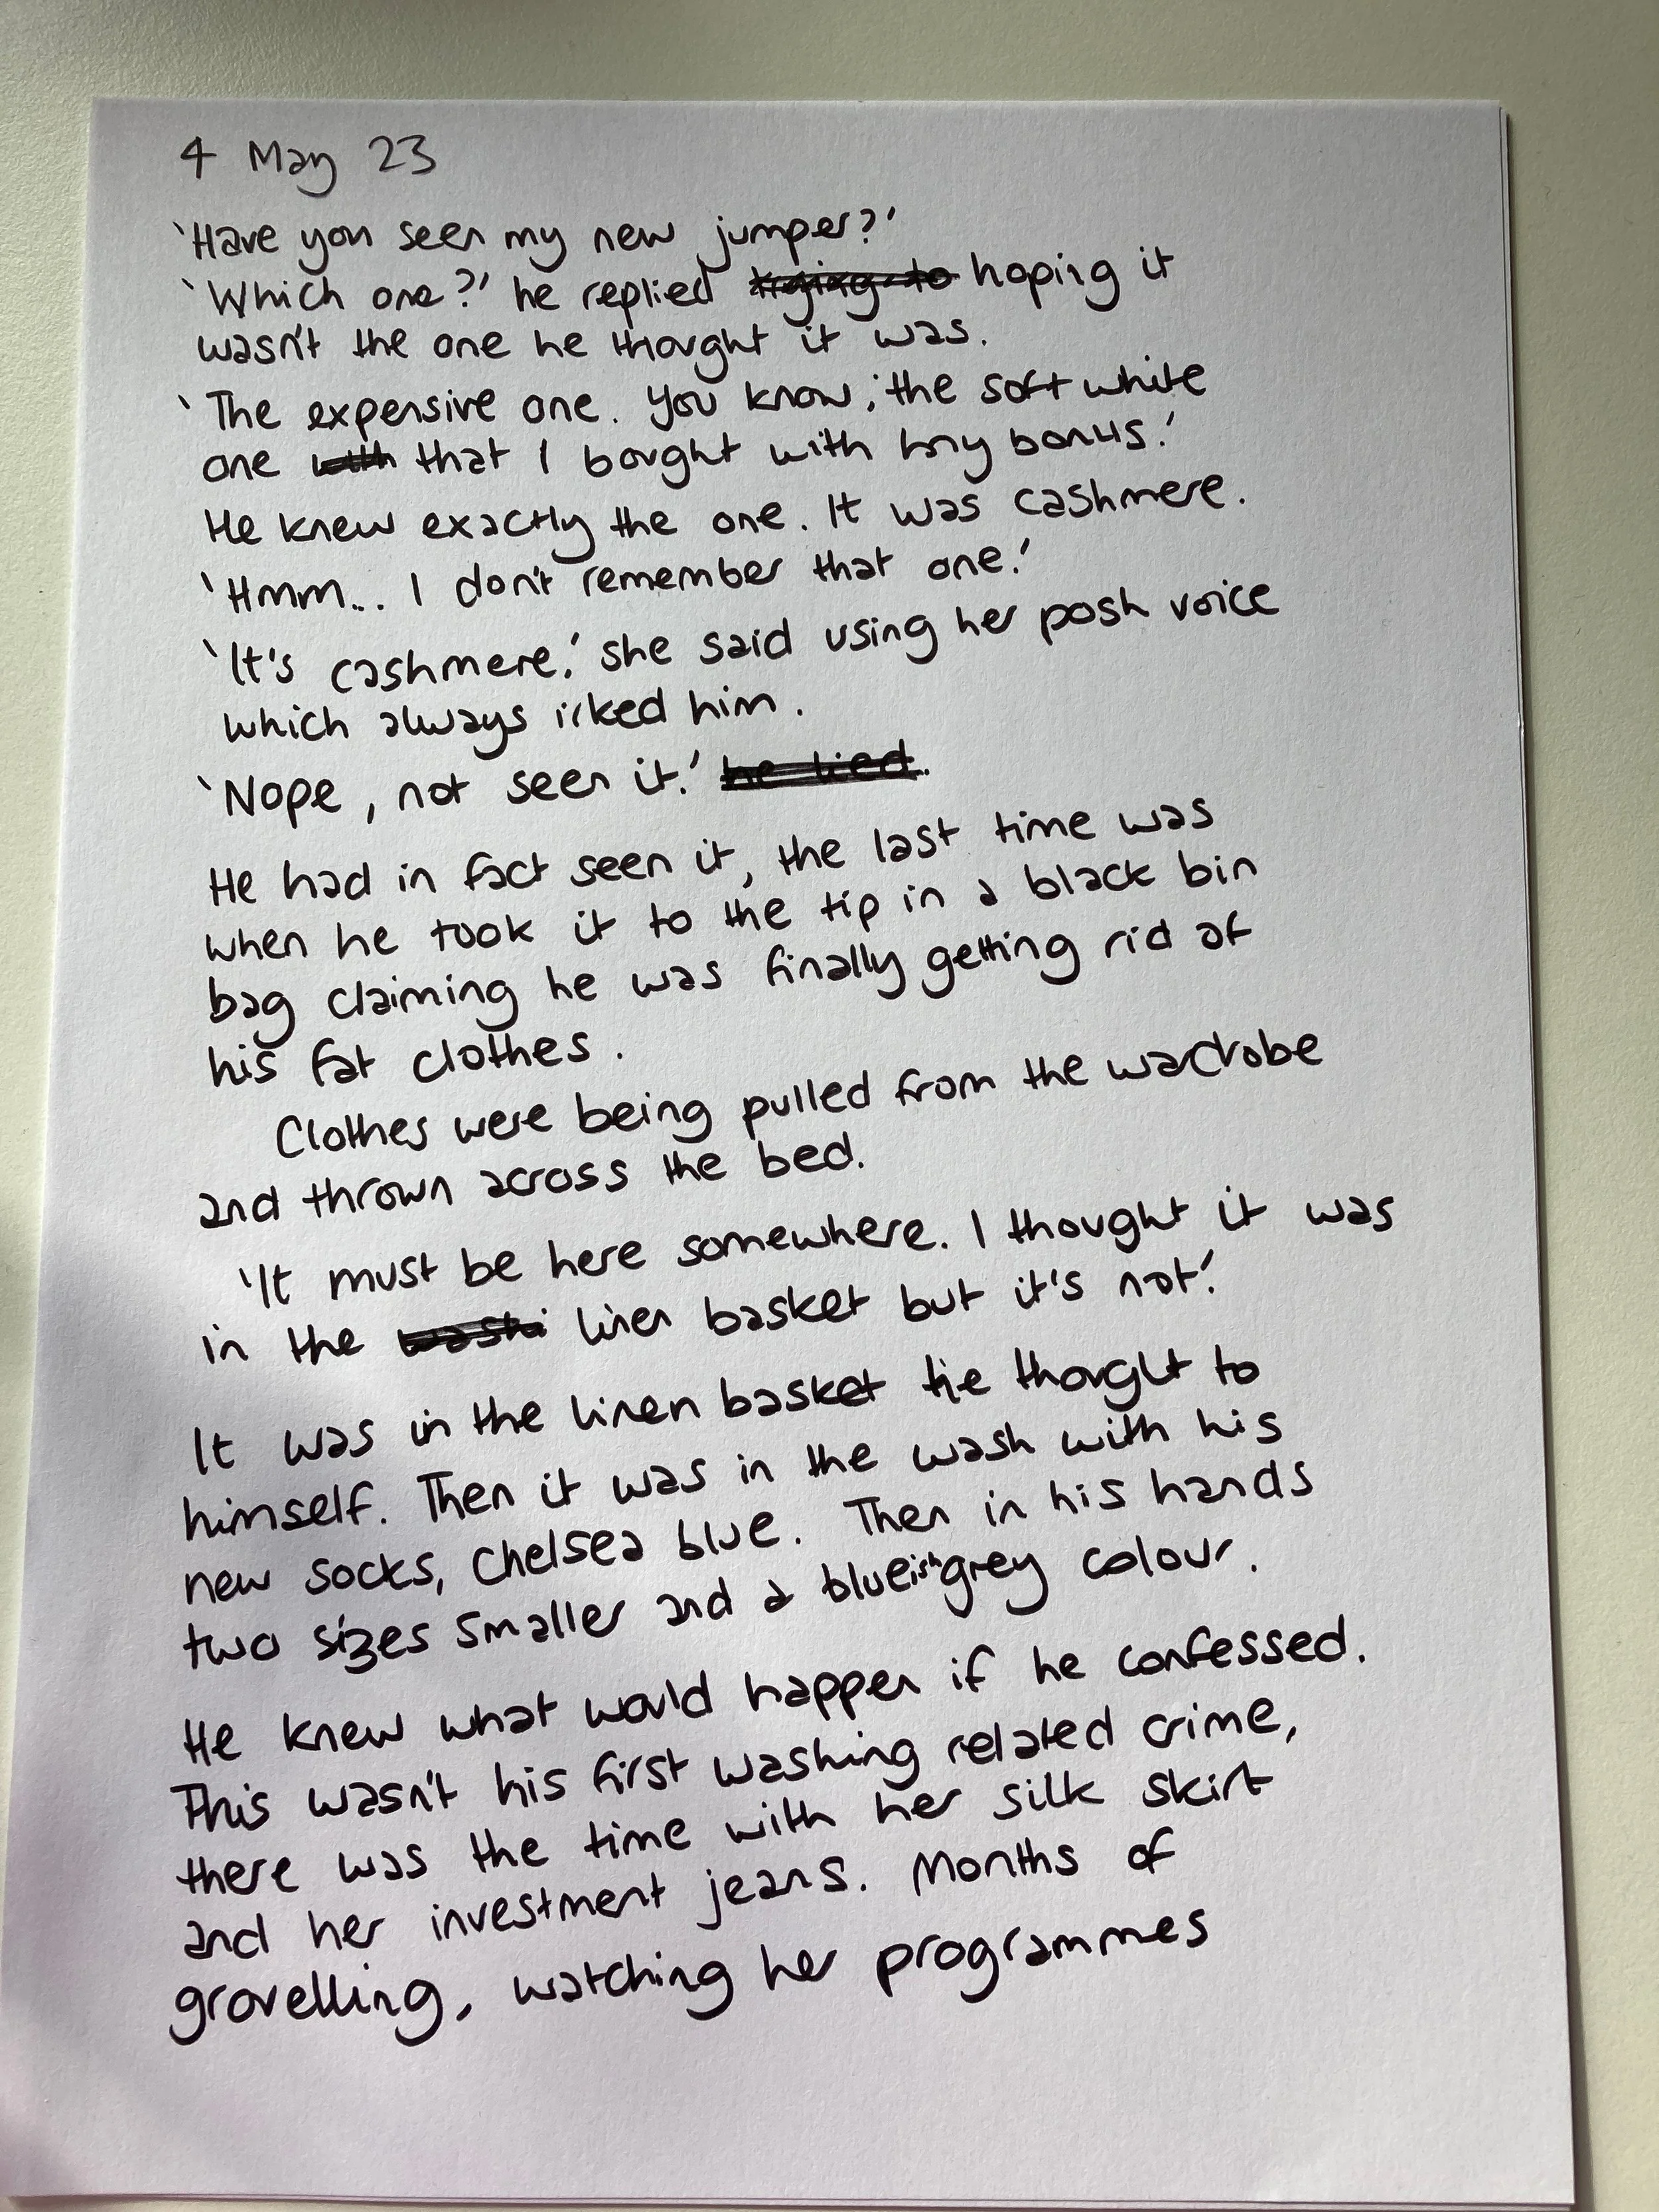 4 May 23
'Have you seen my new jumper?'
'Which one?' he replied trying to hoping it
wasn't the one he thought it was.
'The expensive one. You know, the soft white
one with that I bought with my bonus.'
He knew exactly the one. It was cashmere.
'Hmm... I don't remember that one.'
'It's cashmere,' she said using her posh voice
which always irked him.
'Nope, not seen it.' he lied.
He had in fact seen it, the last time was
when he took it to the tip in a black bin
bag claiming he was finally getting rid of
his fat clothes.
Clothes were being pulled from the wardrobe
and thrown across the bed.
'It must be here somewhere. I thought it was
in the washi linen basket but it's not.'
It was in the linen basket he thought to
himself. Then it was in the wash with his
new socks, Chelsea blue. Then in his hands
two sizes smaller and a blueish grey colour.
He knew what would happen if he confessed.
This wasn't his first washing related crime,
there was the time with her silk skirt
and her investment jeans. Months of
grovelling, watching her programmes